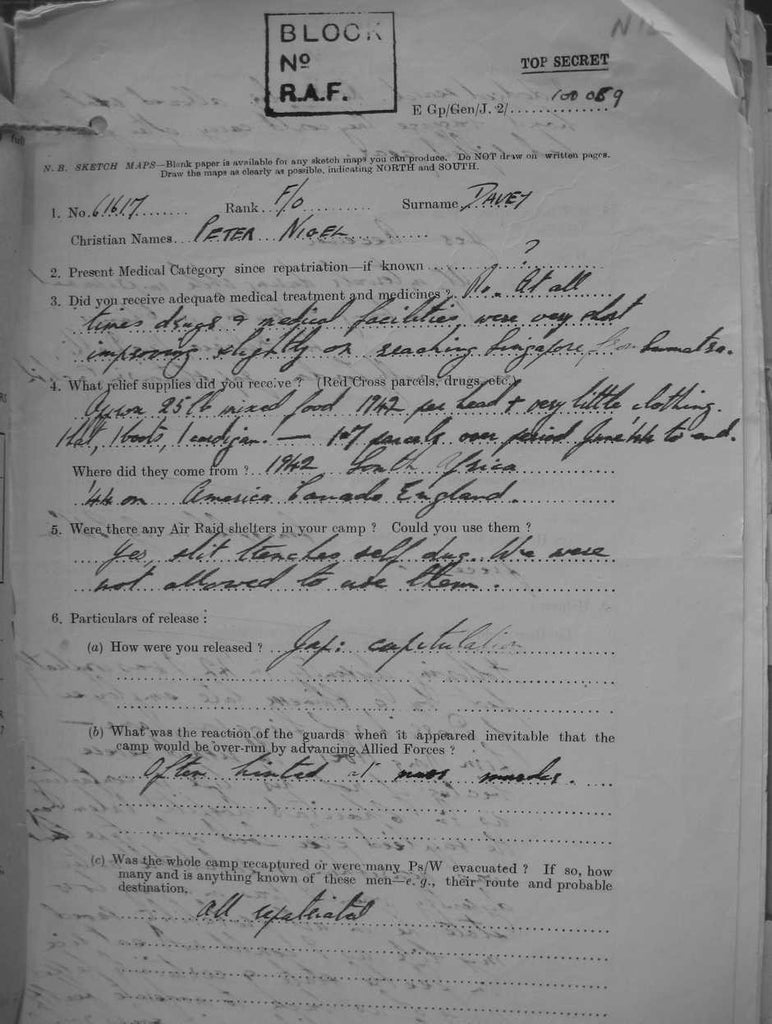 BLOCK
Nº
R.A.F.
TOP SECRET
E Gp/Gen/J. 2/ 100 089
N. B. SKETCH MAPS—Blank paper is available for any sketch maps you can produce. Do NOT draw on written pages.
Draw the maps as clearly as possible, indicating NORTH and SOUTH.
1. No. 61617 Rank F/O Surname DAVEY
Christian Names PETER NIGEL
2. Present Medical Category since repatriation—if known ?
3. Did you receive adequate medical treatment and medicines? No. At all
times drugs & medical facilities were very short
improving slightly on reaching Singapore from Sumatra.
4. What relief supplies did you receive? (Red Cross parcels, drugs, etc.)
Approx 25 lb mixed food 1942 per head + very little clothing.
1 hat, 1 boots, 1 cardigan. — 1•7 parcels over period June '44 to end.
Where did they come from? 1942 South Africa
'44 on America Canada England.
5. Were there any Air Raid shelters in your camp? Could you use them?
Yes, slit trenches self dug. We were
not allowed to use them.
6. Particulars of release:
(a) How were you released? Jap: capitulation
(b) What was the reaction of the guards when it appeared inevitable that the
camp would be over-run by advancing Allied Forces?
Often hinted at mass murder.
(c) Was the whole camp recaptured or were many Ps/W evacuated? If so, how
many and is anything known of these men—e.g., their route and probable
destination.
All repatriated